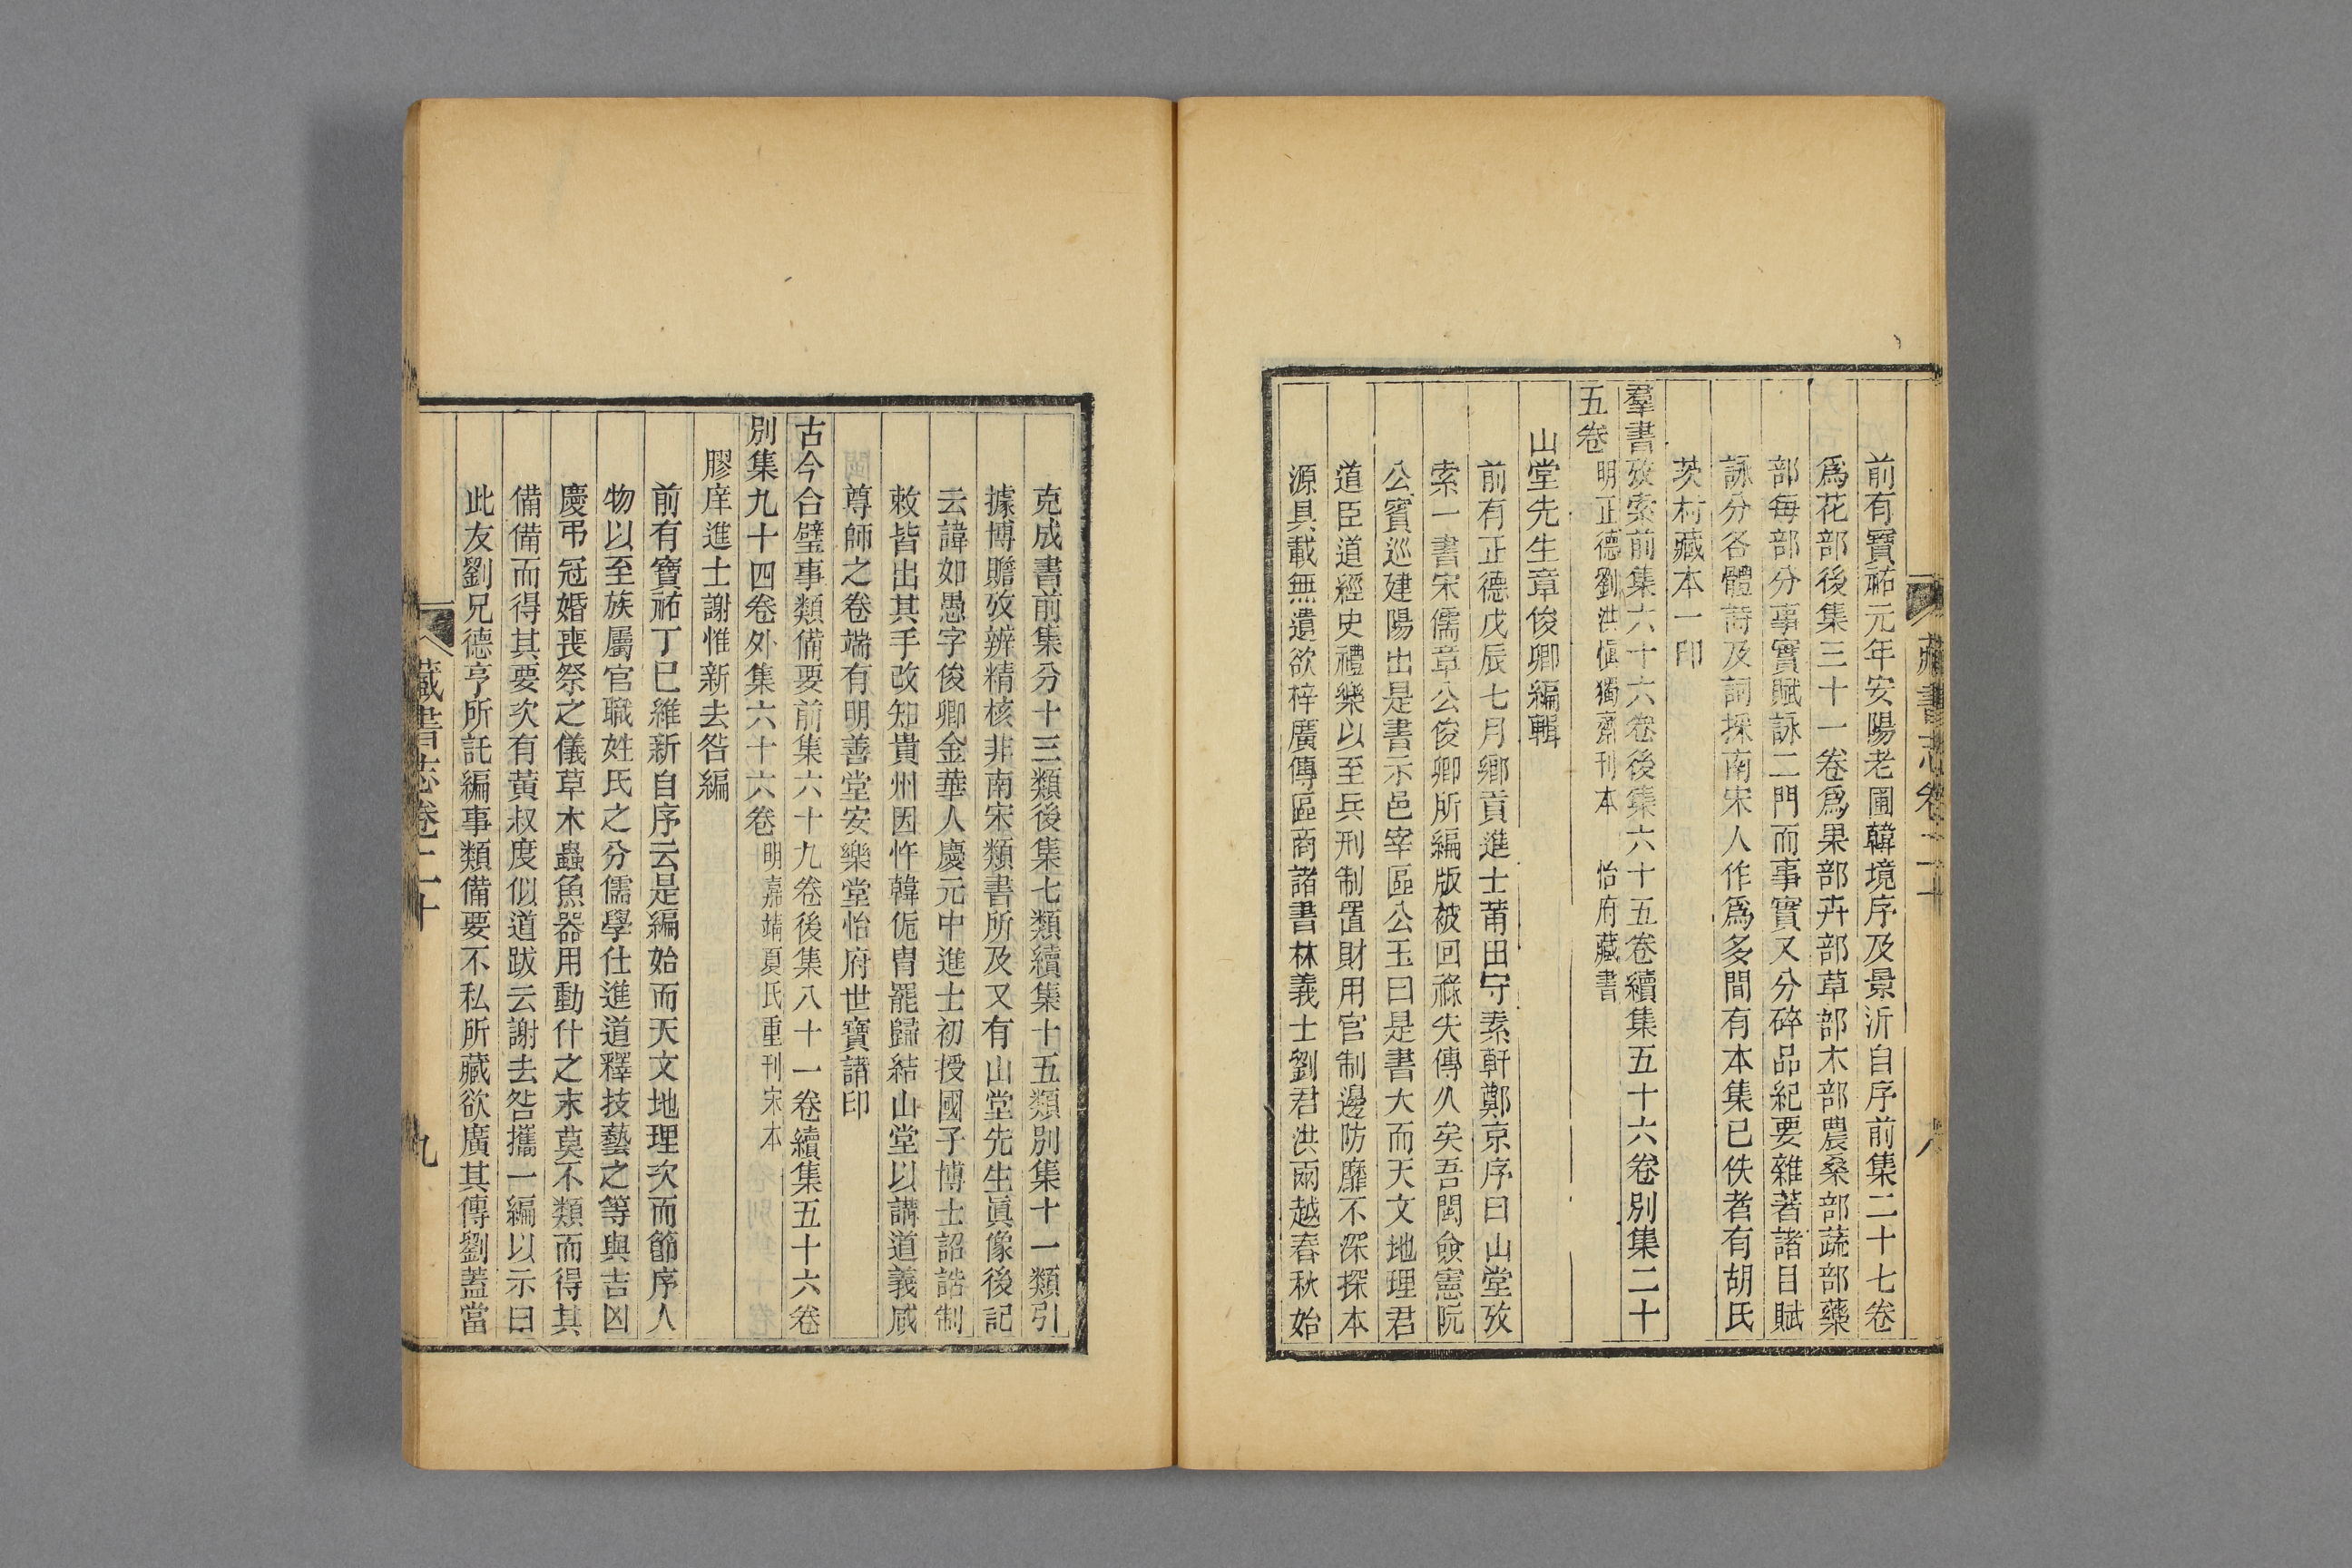 藏書志卷二十
八
前有寶祐元年安陽老圃韓境序及景沂自序前集二十七卷
爲花部後集三十一卷爲果部卉部草部木部農桑部蔬部藥
部每部分事實賦詠二門而事實又分碎品紀要雜著諸目賦
詠分各體詩及詞採南宋人作爲多間有本集已佚者有胡氏
茨村藏本一印
羣書攷索前集六十六卷後集六十五卷續集五十六卷別集二十
五卷 明正德劉洪愼獨齋刊本 怡府藏書
山堂先生章俊卿編輯
前有正德戊辰七月鄉貢進士莆田守素軒鄭京序曰山堂攷
索一書宋儒章公俊卿所編版被回祿失傳久矣吾閩僉憲阮
公賓巡建陽出是書示邑宰區公玉曰是書大而天文地理君
道臣道經史禮樂以至兵刑制置財用官制邊防靡不深探本
源具載無遺欲梓廣傳區商諸書林義士劉君洪雨越春秋始
克成書前集分十三類後集七類續集十五類別集十一類引
據博贍攷辨精核非南宋類書所及又有山堂先生眞像後記
云諱如愚字俊卿金華人慶元中進士初授國子博士詔誥制
敕皆出其手改知貴州因忤韓侂冑罷歸結山堂以講道義咸
尊師之卷端有明善堂安樂堂怡府世寶諸印
古今合璧事類備要前集六十九卷後集八十一卷續集五十六卷
別集九十四卷外集六十六卷 明嘉靖夏氏重刊宋本
膠庠進士謝惟新去咎編
前有寶祐丁巳維新自序云是編始而天文地理次而節序人
物以至族屬官職姓氏之分儒學仕進道釋技藝之等與吉凶
慶弔冠婚喪祭之儀草木蟲魚器用動什之末莫不類而得其
備備而得其要次有黃叔度似道跋云謝去咎攜一編以示曰
此友劉兄德亨所託編事類備要不私所藏欲廣其傳劉蓋當
藏書志卷二十
九